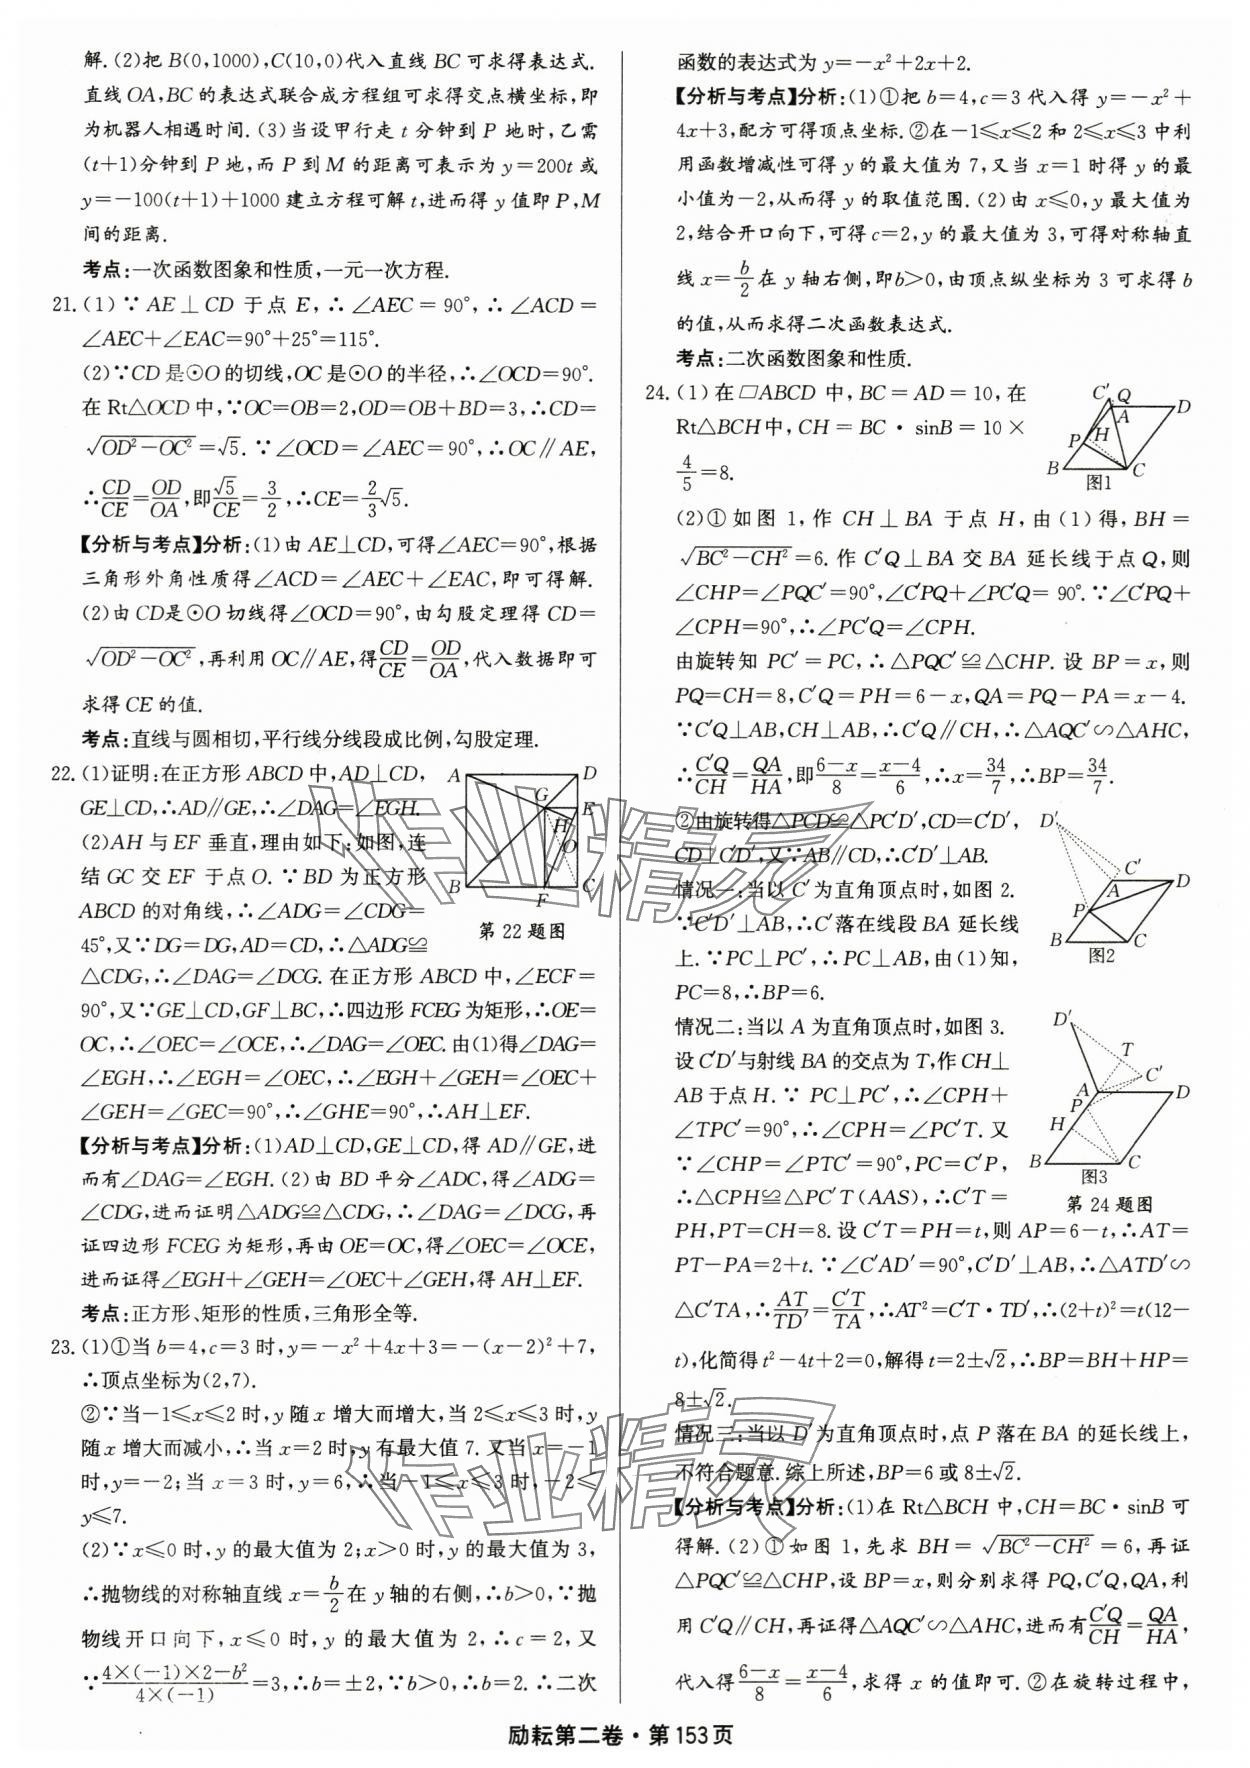 解.(2)把 B(0,1000),C(10,0)代入直线 BC 可求得表达式.
直线 OA,BC 的表达式联合成方程组可求得交点横坐标,即
为机器人相遇时间.(3)当设甲行走 t 分钟到 P 地时,乙需
(t+1)分钟到 P 地,而 P 到 M 的距离可表示为 y=200t 或
y=-100(t+1)+1000 建立方程可解 t,进而得 y 值即 P,M
间的距离.
考点:一次函数图象和性质,一元一次方程.
21.(1)∵AE⊥CD 于点 E,∴∠AEC=90°,∴∠ACD=
∠AEC+∠EAC=90°+25°=115°.
(2)∵CD是⊙O的切线,OC是⊙O的半径,∴∠OCD=90°.
在Rt△OCD中,∵OC=OB=2,OD=OB+BD=3,∴CD=
√(OD²-OC²)=√5.∵∠OCD=∠AEC=90°,∴OC∥AE,
∴CD/CE=OD/OA,即√5/CE=3/2,∴CE=2/3√5.
【分析与考点】分析:(1)由 AE⊥CD,可得∠AEC=90°,根据
三角形外角性质得∠ACD=∠AEC+∠EAC,即可得解.
(2)由CD是⊙O切线得∠OCD=90°,由勾股定理得CD=
√(OD²-OC²),再利用OC∥AE,得CD/CE=OD/OA,代入数据即可
求得CE的值.
考点:直线与圆相切,平行线分线段成比例,勾股定理.
22.(1)证明:在正方形ABCD中,AD⊥CD,
GE⊥CD,∴AD∥GE,∴∠DAG=∠EGH.
(2)AH与EF垂直,理由如下:如图,连
结GC交EF于点O.∵BD为正方形
ABCD的对角线,∴∠ADG=∠CDG=
45°,又∵DG=DG,AD=CD,∴△ADG≌
△CDG,∴∠DAG=∠DCG.在正方形ABCD中,∠ECF=
90°,又∵GE⊥CD,GF⊥BC,∴四边形FCEG为矩形,∴OE=
OC,∴∠OEC=∠OCE,∴∠DAG=∠OEC.由(1)得∠DAG=
∠EGH,∴∠EGH=∠OEC,∴∠EGH+∠GEH=∠OEC+
∠GEH=∠GEC=90°,∴∠GHE=90°,∴AH⊥EF.
【分析与考点】分析:(1)AD⊥CD,GE⊥CD,得AD∥GE,进
而有∠DAG=∠EGH.(2)由BD平分∠ADC,得∠ADG=
∠CDG,进而证明△ADG≌△CDG,∴∠DAG=∠DCG,再
证四边形FCEG为矩形,再由OE=OC,得∠OEC=∠OCE,
进而证得∠EGH+∠GEH=∠OEC+∠GEH,得AH⊥EF.
考点:正方形、矩形的性质,三角形全等.
A D G E H O B F C
第22题图
23.(1)①当b=4,c=3时,y=-x²+4x+3=-(x-2)²+7,
∴顶点坐标为(2,7).
②∵当-1≤x≤2时,y随x增大而增大,当2≤x≤3时,y
随x增大而减小,∴当x=2时,y有最大值7.又当x=-1
时,y=-2;当x=3时,y=6,∴当-1≤x≤3时,-2≤
y≤7.
(2)∵x≤0时,y的最大值为2;x>0时,y的最大值为3,
∴抛物线的对称轴直线x=b/2在y轴的右侧,∴b>0,∵抛
物线开口向下,x≤0时,y的最大值为2,∴c=2,又
∵(4×(-1)×2-b²)/(4×(-1))=3,∴b=±2,∵b>0,∴b=2.∴二次
函数的表达式为y=-x²+2x+2.
【分析与考点】分析:(1)①把b=4,c=3代入得y=-x²+
4x+3,配方可得顶点坐标.②在-1≤x≤2和2≤x≤3中利
用函数增减性可得y的最大值为7,又当x=1时得y的最
小值为-2,从而得y的取值范围.(2)由x≤0,y最大值为
2,结合开口向下,可得c=2,y的最大值为3,可得对称轴直
线x=b/2在y轴右侧,即b>0,由顶点纵坐标为3可求得b
的值,从而求得二次函数表达式.
考点:二次函数图象和性质.
24.(1)在▱ABCD中,BC=AD=10,在
Rt△BCH中,CH=BC·sinB=10×
4/5=8.
C′ Q A D P H B C
图1
(2)①如图1,作CH⊥BA于点H,由(1)得,BH=
√(BC²-CH²)=6.作C′Q⊥BA交BA延长线于点Q,则
∠CHP=∠PQC′=90°,∠C′PQ+∠PC′Q=90°.∵∠C′PQ+
∠CPH=90°,∴∠PC′Q=∠CPH.
由旋转知PC′=PC,∴△PQC′≌△CHP.设BP=x,则
PQ=CH=8,C′Q=PH=6-x,QA=PQ-PA=x-4.
∵C′Q⊥AB,CH⊥AB,∴C′Q∥CH,∴△AQC′∽△AHC,
∴C′Q/CH=QA/HA,即(6-x)/8=(x-4)/6,∴x=34/7,∴BP=34/7.
②由旋转得△PCD≌△PC′D′,CD=C′D′,
CD⊥C′D′,又∵AB∥CD,∴C′D′⊥AB.
情况一:当以C′为直角顶点时,如图2.
∵C′D′⊥AB,∴C′落在线段BA延长线
上.∵PC⊥PC′,∴PC⊥AB,由(1)知,
PC=8,∴BP=6.
D′ C′ A D P B C
图2
情况二:当以A为直角顶点时,如图3.
设C′D′与射线BA的交点为T,作CH⊥
AB于点H.∵PC⊥PC′,∴∠CPH+
∠TPC′=90°,∴∠CPH=∠PC′T.又
∵∠CHP=∠PTC′=90°,PC=C′P,
∴△CPH≌△PC′T(AAS),∴C′T=
D′ T C′ A D P H B C
图3
第24题图
PH,PT=CH=8.设C′T=PH=t,则AP=6-t,∴AT=
PT-PA=2+t.∵∠C′AD′=90°,C′D′⊥AB,∴△ATD′∽
△C′TA,∴AT/TD′=C′T/TA,∴AT²=C′T·TD′,∴(2+t)²=t(12-
t),化简得t²-4t+2=0,解得t=2±√2,∴BP=BH+HP=
8±√2.
情况三:当以D′为直角顶点时,点P落在BA的延长线上,
不符合题意.综上所述,BP=6或8±√2.
【分析与考点】分析:(1)在Rt△BCH中,CH=BC·sinB可
得解.(2)①如图1,先求BH=√(BC²-CH²)=6,再证
△PQC′≌△CHP,设BP=x,则分别求得PQ,C′Q,QA,利
用C′Q∥CH,再证得△AQC′∽△AHC,进而有C′Q/CH=QA/HA,
代入得(6-x)/8=(x-4)/6,求得x的值即可.②在旋转过程中,
励耘第二卷·第153页
作业精灵
作业精灵